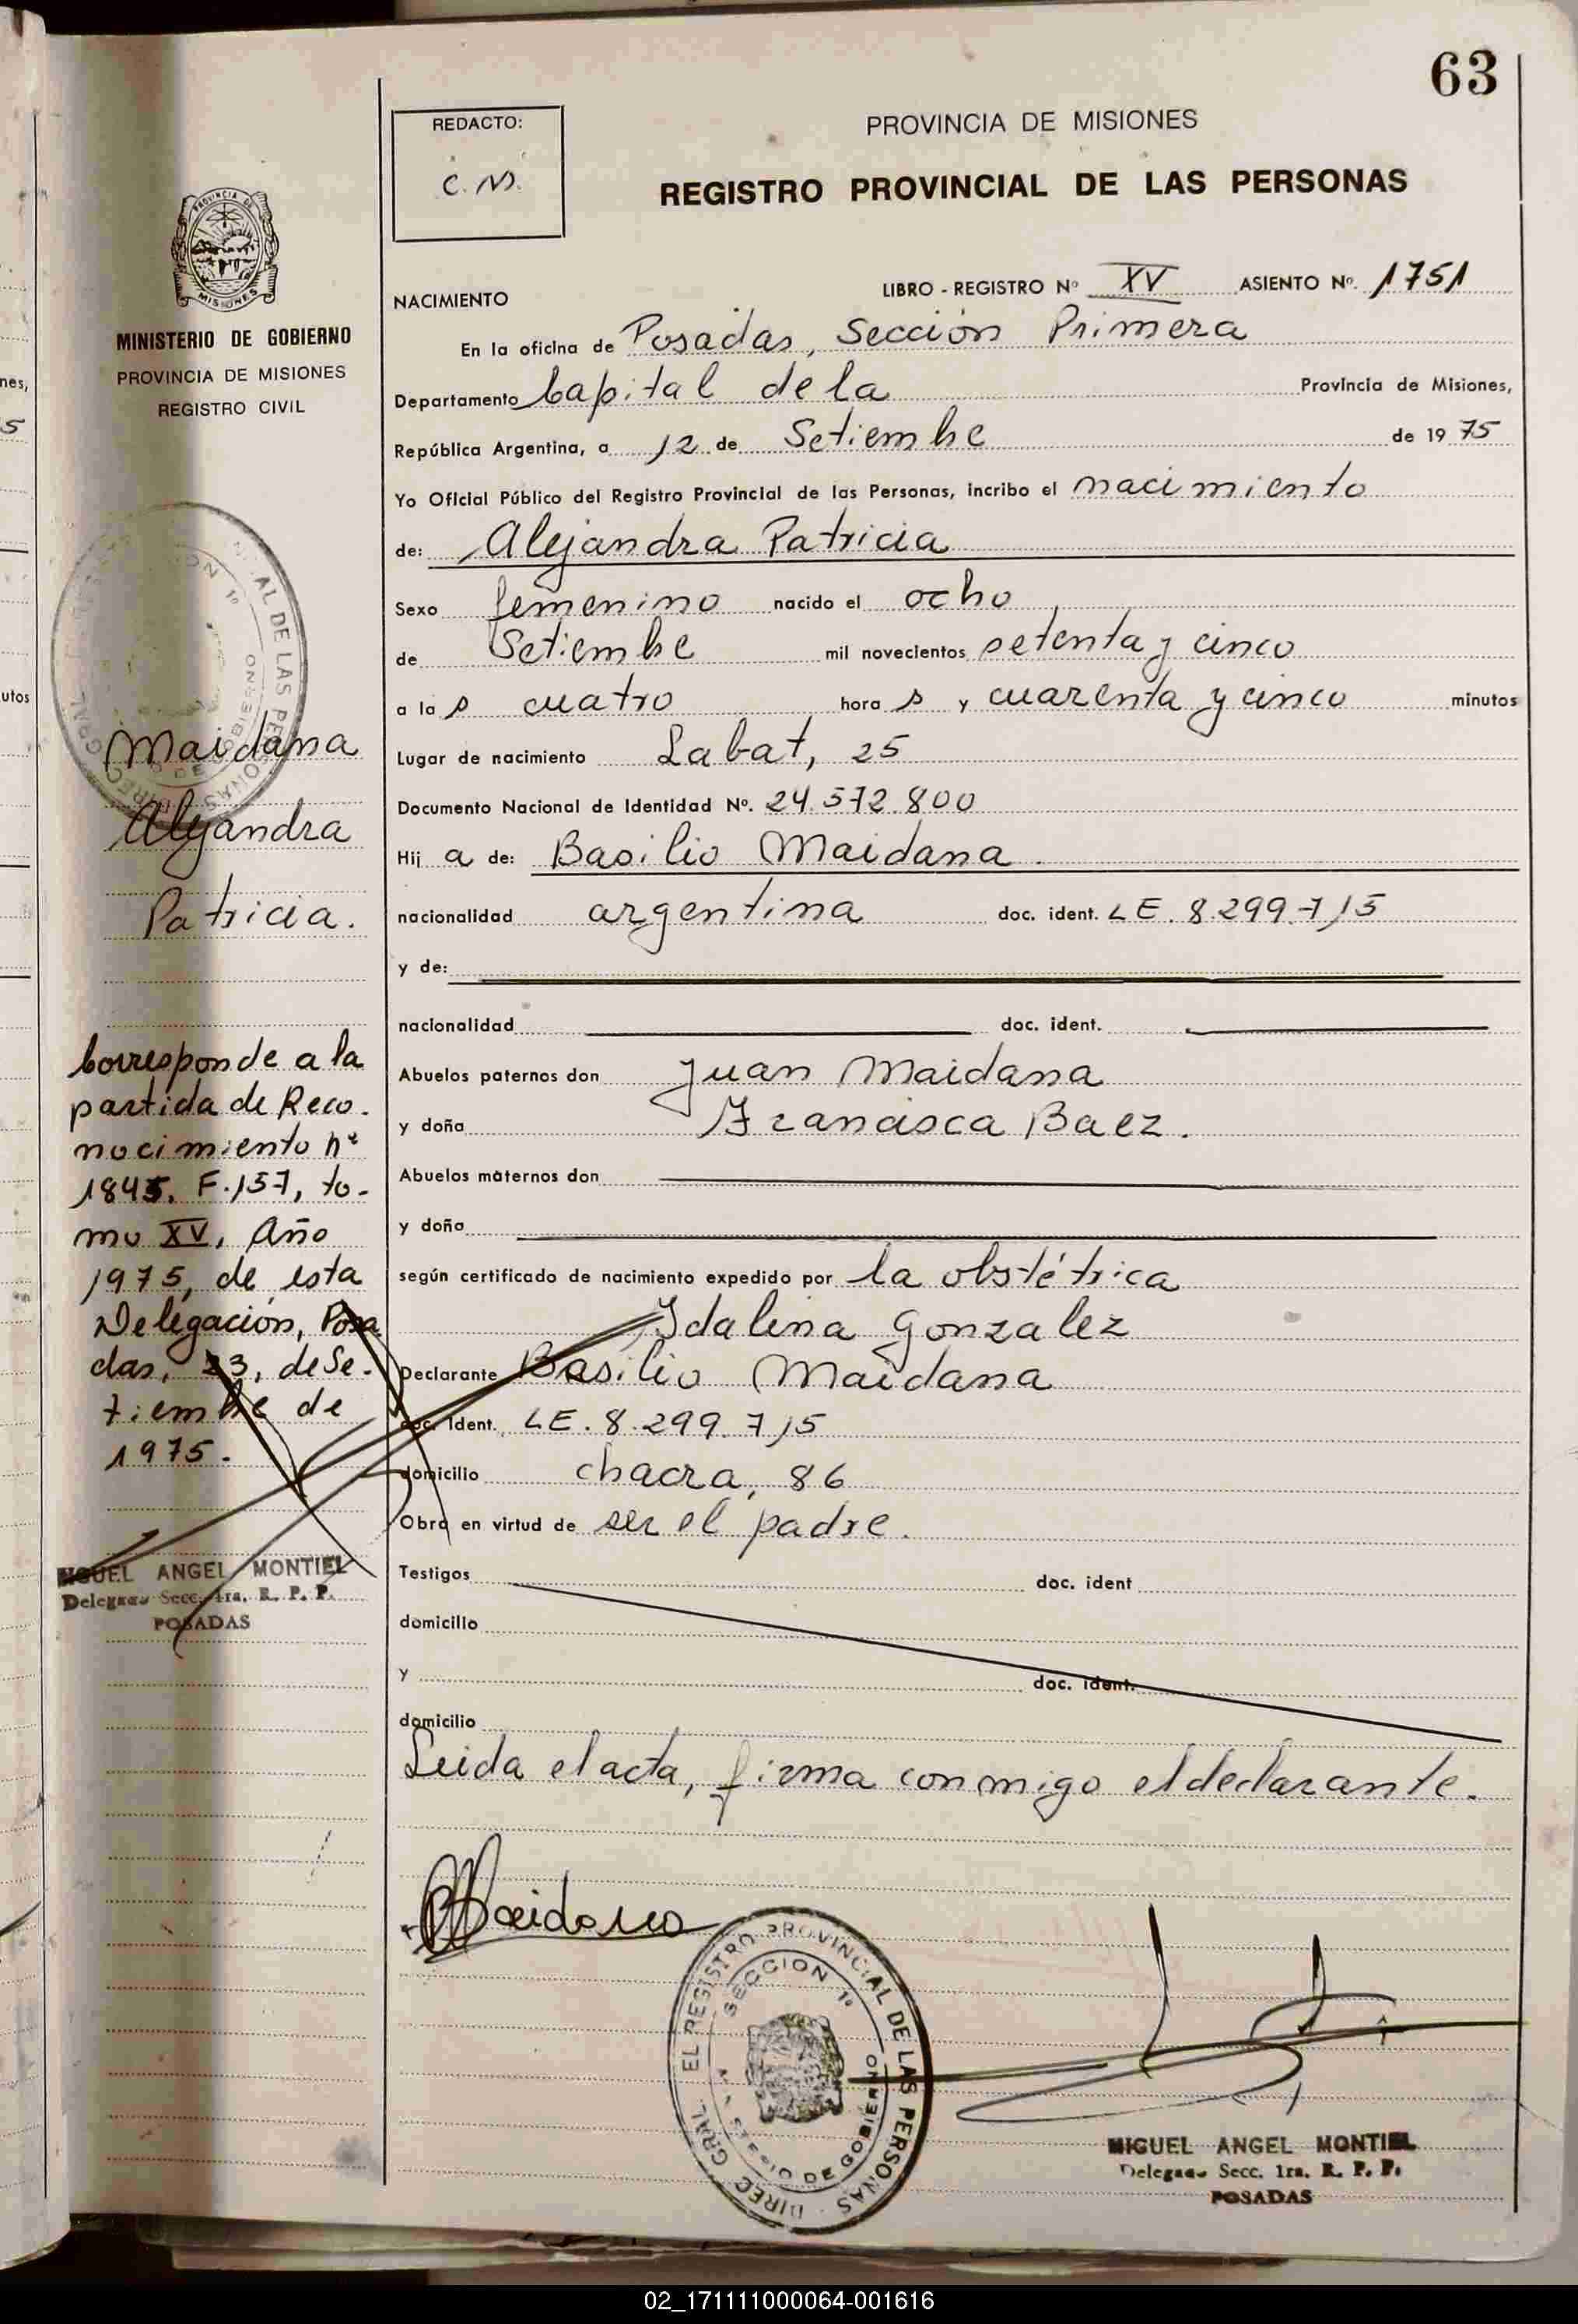 63
REDACTO:
C. M.
PROVINCIA DE MISIONES
REGISTRO PROVINCIAL DE LAS PERSONAS
LIBRO - REGISTRO Nº XV ASIENTO Nº. 1751
NACIMIENTO
En la oficina de Posadas, Sección Primera
Departamento Capital de la Provincia de Misiones,
República Argentina, a 12 de Setiembre de 19 75
Yo Oficial Público del Registro Provincial de las Personas, incribo el nacimiento
de: Alejandra Patricia
Sexo femenino nacido el ocho
de Setiembre mil novecientos setenta y cinco
a la s cuatro hora s y cuarenta y cinco minutos
Lugar de nacimiento Labat, 25
Documento Nacional de Identidad Nº. 24.572.800
Hij a de: Basilio Maidana.
nacionalidad argentina doc. ident. LE. 8.299.715
y de:
nacionalidad doc. ident.
Abuelos paternos don Juan Maidana
y doña Francisca Baez.
Abuelos maternos don
y doña
según certificado de nacimiento expedido por la obstétrica
Idalina Gonzalez
Declarante Basilio Maidana
doc. ident. LE. 8.299.715
domicilio chacra, 86
Obra en virtud de ser el padre.
Testigos doc. ident
domicilio
y doc. ident.
domicilio
Leida el acta, firma conmigo el declarante.
Maidana
EL REGISTRO PROVINCIAL DE LAS PERSONAS
DIREC. GRAL.
SECCION 1º
DE GOBIERNO
MIGUEL ANGEL MONTIEL
Delegado Secc. 1ra. R. P. P.
POSADAS
PROVINCIA DE
MISIONES
MINISTERIO DE GOBIERNO
PROVINCIA DE MISIONES
REGISTRO CIVIL
Maidana
Alejandra
Patricia.
Corresponde a la
partida de Reco-
nocimiento nº
1845. F. 157, to-
mo XV, Año
1975, de esta
Delegación, Posa
das, 23, de Se-
tiembre de
1975.
MIGUEL ANGEL MONTIEL
Delegado Secc. 1ra. R. P. P.
POSADAS
nes,
5
utos
02_171111000064-001616